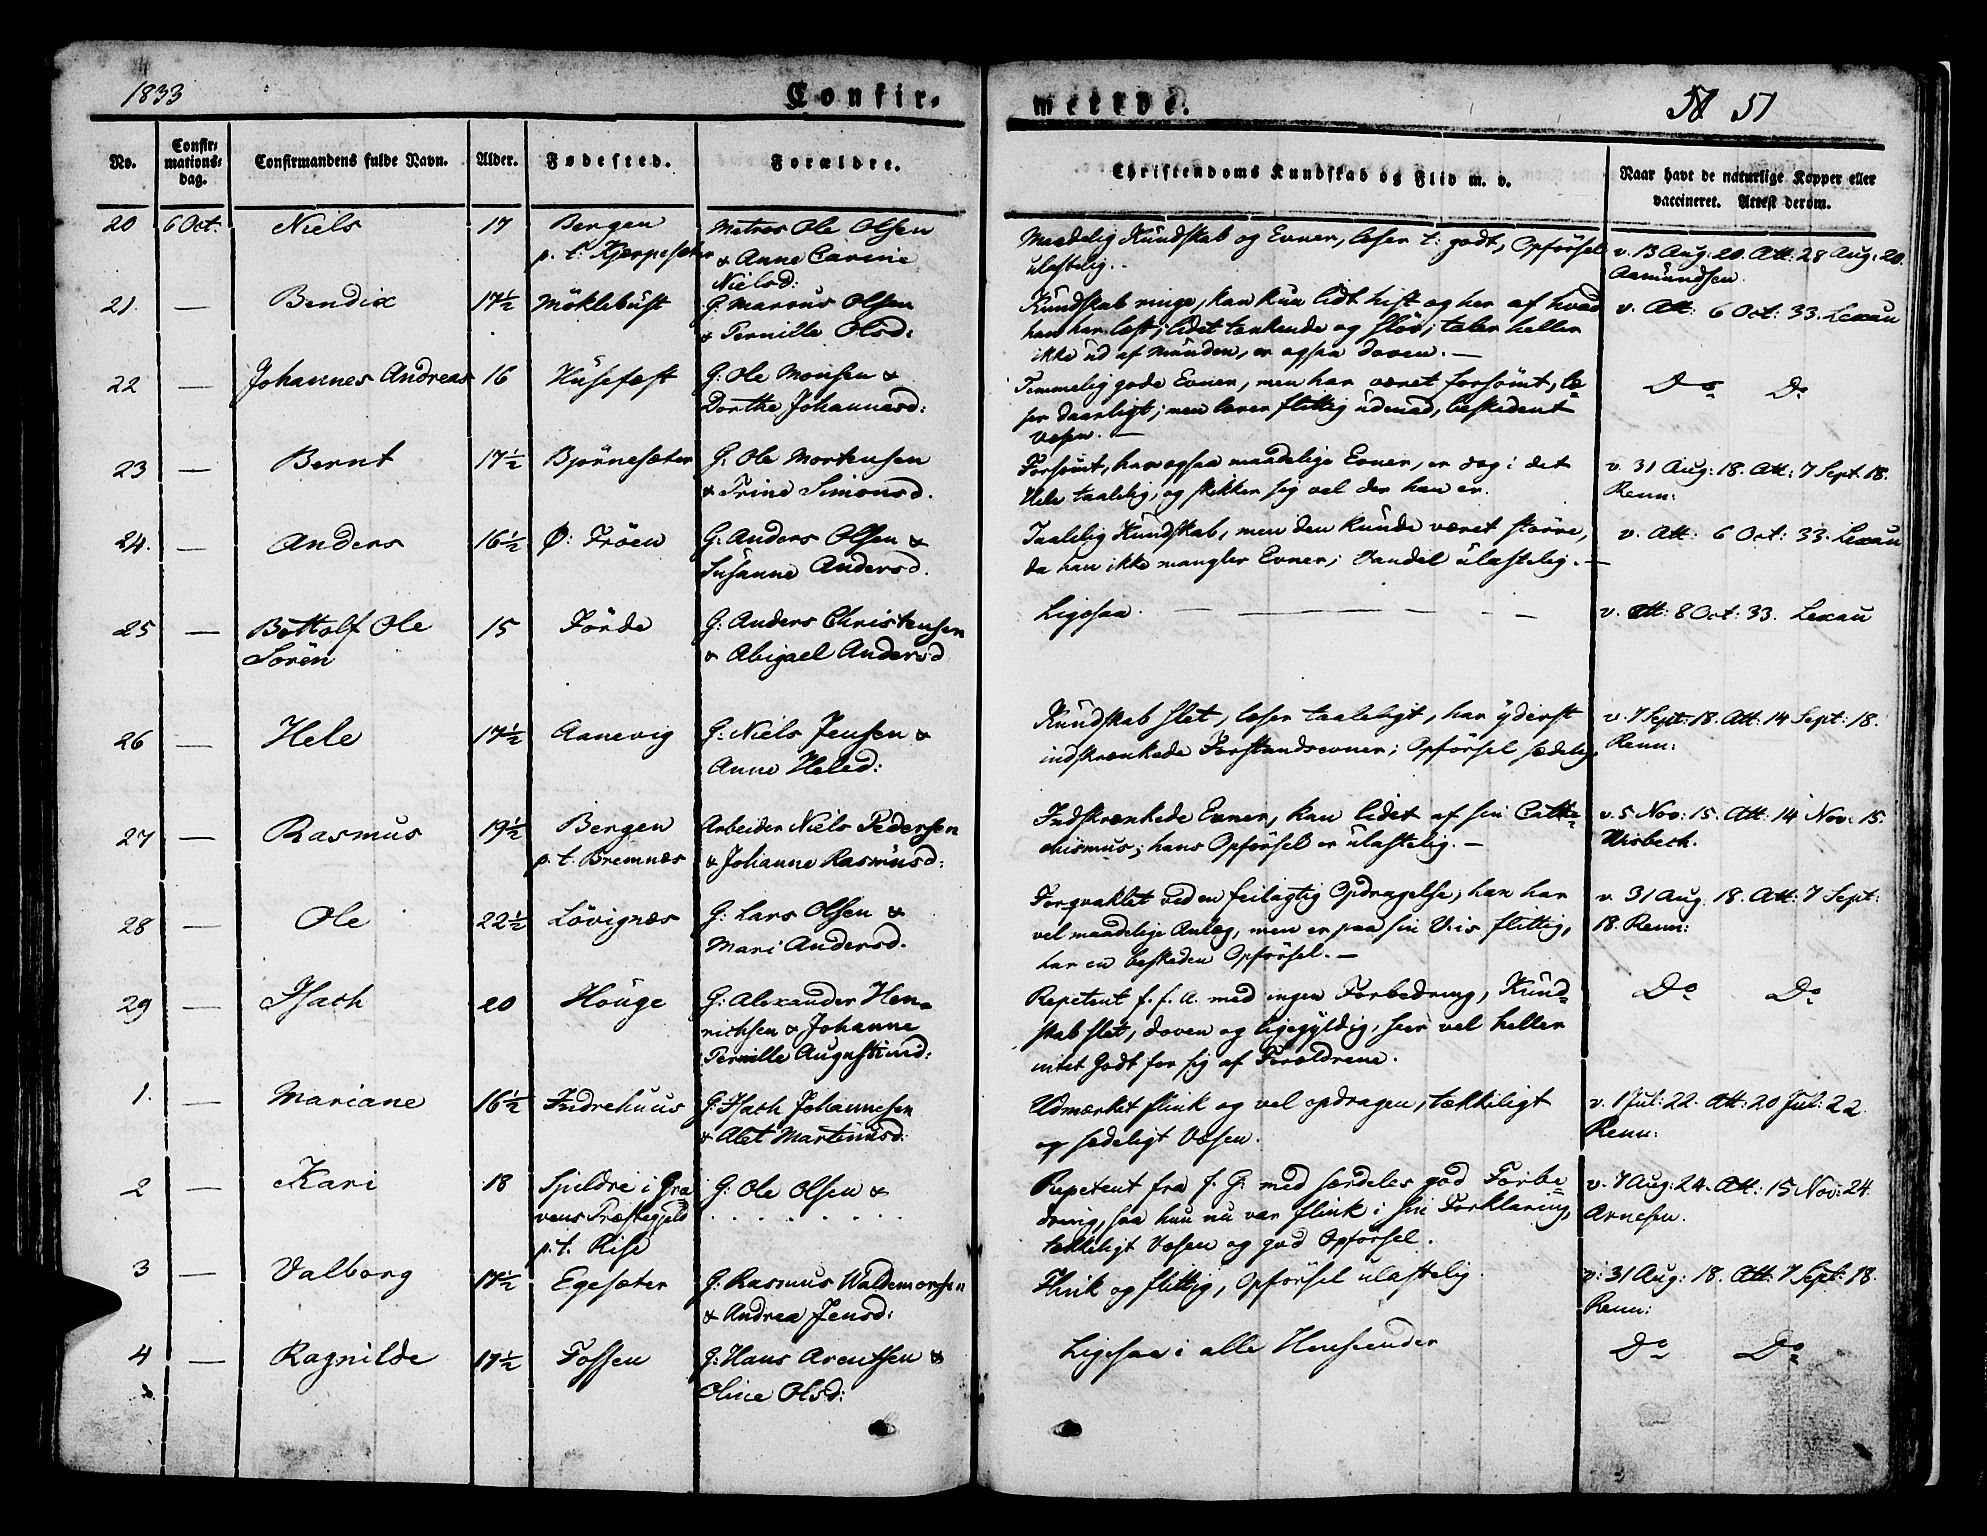 1833
Confir-
merede.
51 51
No.
Confir-
mations-
dag.
Confirmandens fulde Navn.
Alder.
Fødested.
Forældre.
Christendoms Kundskab og Flid m. v.
Naar havt de naturlige Kopper eller
vaccineret. Attest derom.
20 6 Oct: Niels 17 Bergen Matros Ole Olsen
p. t. Kjerpeseter & Anne Carine
Nielsd:
Maadelig Kundskab og Evner, læser t: godt, Opförsel
ulastelig.
v. 13 Aug: 20. Att: 28 Aug: 20.
Aamundsen.
21. — Bendix 17½ Möklebust G: Marcus Olsen
& Pernille Olsd:
Kundskab ringe, kan kun lidt hist og her af hvad
han har læst; lidet tænkende og slöv; taler heller
ikke ud af Munden, er ogsaa doven. —
v. Att: 6 Oct: 33. Lexau
22 — Johannes Andreas 16 Husefest G: Ole Monsen &
Dorthe Johannesd:
Temmelig gode Evner, men har været forsömt, læ-
ser daarligt; men lærer flittig udenad, beskedent
Væsen. —
Do Do
23 — Bernt 17½ Björneseter G: Ole Mortensen
& Trine Simonsd.
Forsömt, har ogsaa maadelige Evner, er dog i det
Hele taalelig, og skikker sig vel der han er.
v. 31 Aug: 18. Att: 7 Sept: 18.
Renn:
24. — Anders 16½ Ø: Fröen G: Anders Olsen &
Susanne Andersd.
Taalelig Kundskab, men den kunde været större,
da han ikke mangler Evner; Vandel ulastelig. —
v. Att: 6 Oct: 33. Lexau
25 — Bottolf Ole 15 Förde G: Anders Christensen
Sörén & Abigael Andersd
Ligesaa. — — — —
v. Att: 8 Oct: 33. Lexau
26 — Hele 17½ Aanevig G: Niels Jensen &
Anne Heled:
Kundskab slet, læser taaleligt, har yderst
indskrænkede Forstandsevner; Opförsel sædelig.
v. 7 Sept: 18. Att: 14 Sept: 18.
Renn:
27 — Rasmus 19½ Bergen Arbeider Niels Pedersen
p. t. Bremnæs & Johanne Rasmusd:
Indskrænkede Evner, kan lidet af sin Catke-
chismus; hans Opförsel er ulastelig. —
v. 5 Nov: 15. Att: 14 Nov: 15.
Wisbech.
28 — Ole 22½ Lövignæs G: Lars Olsen &
Mari Andersd.
Forqvaklet ved en feilagtig Opdragelse, han har
vel maadelige Anlæg, men er paa sin Viis flittig,
har en beskeden Opförsel. —
v. 31 Aug. 18. Att: 7 Sept:
18. Renn:
29 — Isach 20 Houge G: Alexander Hen-
richsen & Johanne
Pernille Augustinid:
Repetent f. f. A. med ingen Forbedring, Kund-
skab slet, doven og ligegyldig, seer vel heller
intet Godt for sig af Forældrene.
Do Do
1. — Mariane 16½ Indrehuus G: Isach Johannesen
& Alet Martinusd:
Udmærket flink og vel opdragen, tækkeligt
og sædeligt Væsen.
v. 1 Jul: 22. Att: 20 Jul: 22.
Renn:
2 — Kari 18 Spildre i Gra- G: Ole Olsen &
vens Præstegjeld . . . . . . .
p. t. Rise
Repetent fra f. G: med særdeles god Forbe-
dring, saa hun nu var flink i sin Forklaring,
tækkeligt Væsen og god Opförsel.
v. 7 Aug: 24. Att: 15 Nov: 24.
Arnesen.
3 — Valborg 17½ Egeseter G: Rasmus Waldemorsen
& Andrea Jensd:
Flink og flittig, Opförsel ulastelig.
v: 31 Aug: 18. Att: 7 Sept: 18.
Renn:
4 — Ragnilde 17½ Fossen G: Hans Arentsen &
Oline Olsd:
Ligesaa i alle Henseender
Do Do